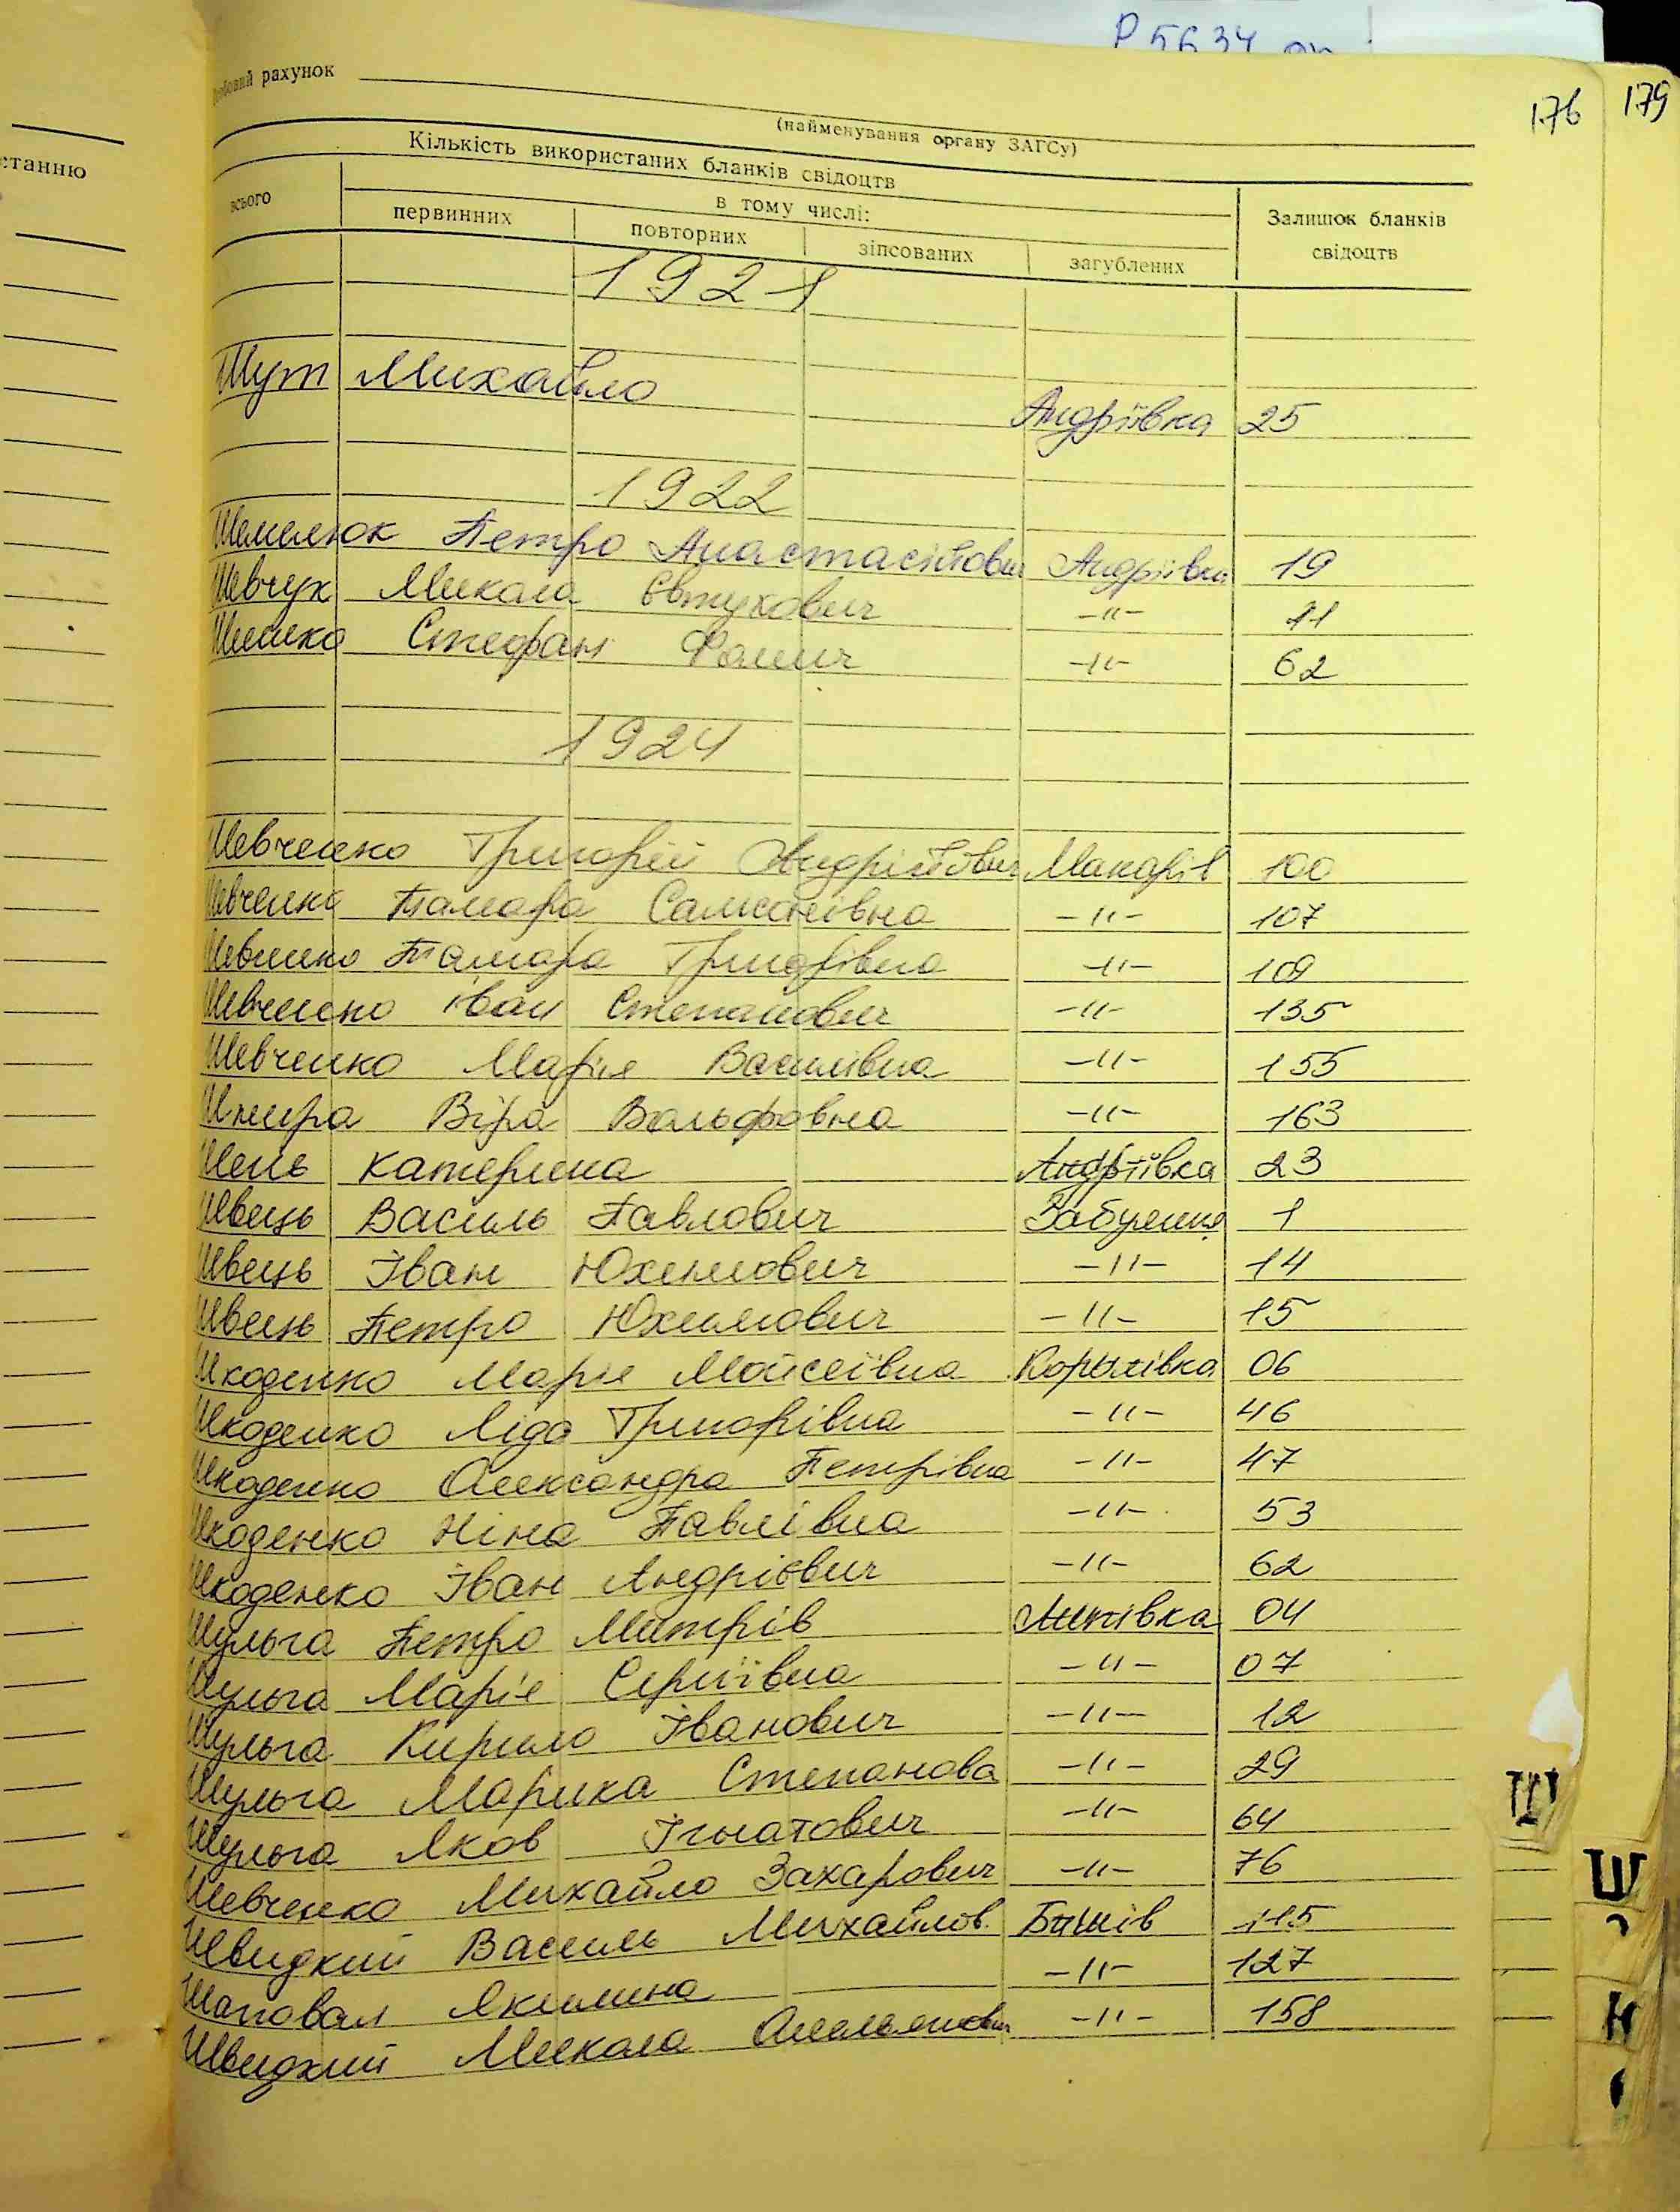 Р 5634 оп
176 179
рахунок
(найменування органу ЗАГСу)
станню
Кількість використаних бланків свідоцтв
всього
в тому числі:
первинних повторних зіпсованих загублених
Залишок бланків свідоцтв
1921
Шут Михайло Андріївка 25
1922
Шемелюк Петро Анастасійович Андріївка 19
Шевчук Микола Євтухович -"- 11
Шешко Стефан Фомич -"- 62
1924
Шевченко Григорій Андрійович Макарів 100
Шевченко Тамара Самсонівна -"- 107
Шевченко Тамара Григорівна -"- 109
Шевченко Іван Степанович -"- 135
Шевченко Марія Василівна -"- 155
Віра Вольфовна -"- 163
Шень Катерина Андріївка 23
Швець Василь Павлович Забуяння 1
Швець Іван Юхимович -"- 14
Швець Петро Юхимович -"- 15
Шкоденко Марія Мойсеївна Королівка 06
Шкоденко Ліда Григорівна -"- 46
Шкоденко Олександра Петрівна -"- 47
Шкоденко Ніна Павлівна -"- 53
Шкоденко Іван Андрієвич -"- 62
Шульга Петро Митрів Липівка 04
Шульга Марія Сергіївна -"- 07
Шульга Кирило Іванович -"- 12
Шульга Марика Степанова -"- 29
Шульга Яков Ігнатович -"- 64
Шевченко Михайло Захарович -"- 76
Швидкий Василь Михайлов. Бишів 115
Шаповал Якилина -"- 127
Швидкий Микола Омельянович -"- 158
Щ
Ш